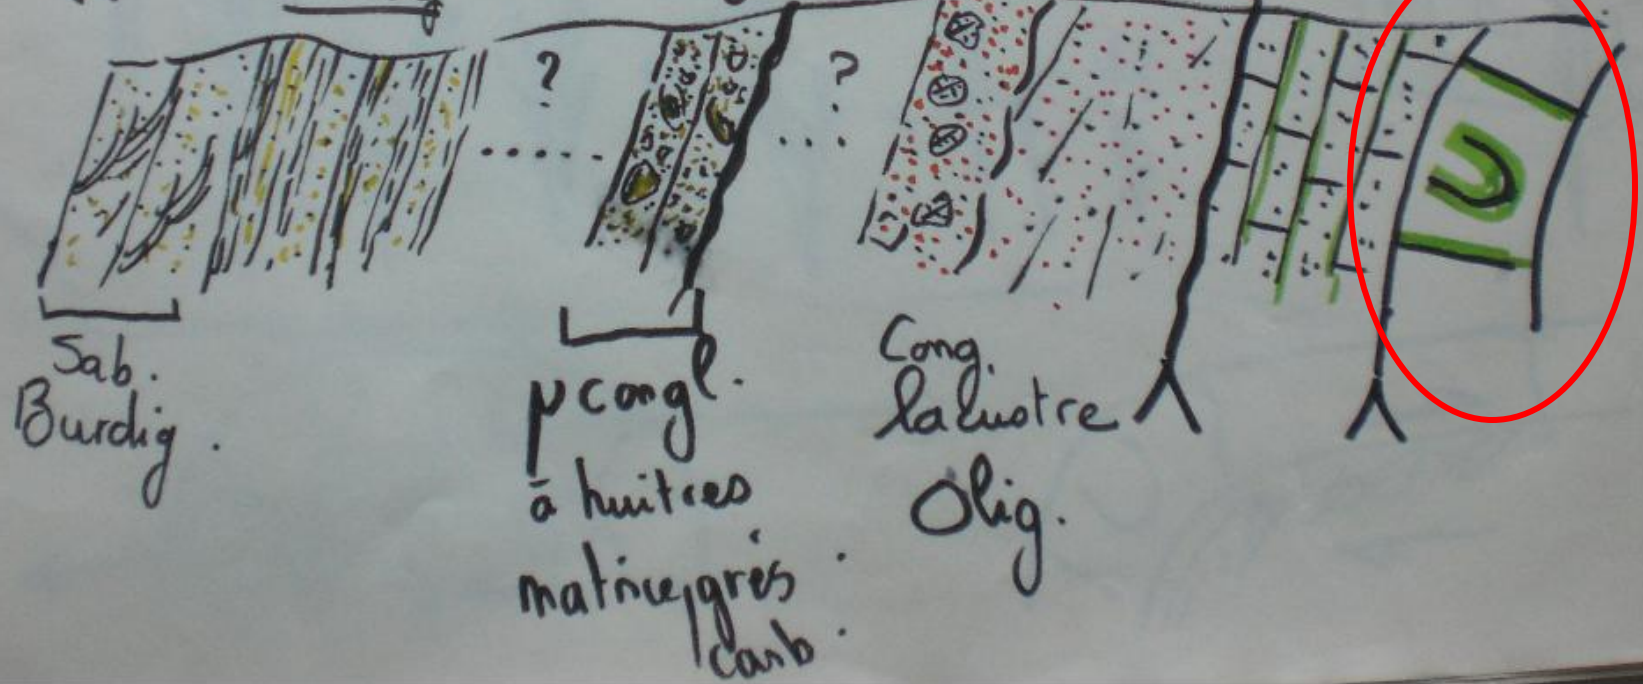 ?
?
Sab.
Burdig.
µcongl.
à huitres
matrice, grès
carb.
Cong.
lacustre
Olig.